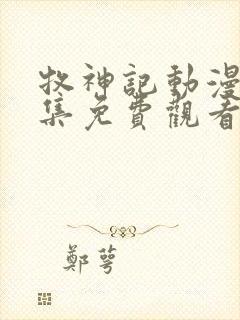 牧神記動漫
集免費觀看
鄭萼